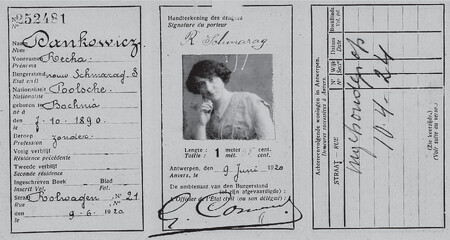 No 252481
Naam Dankowicz
Nom
Voornaam Recha
Prénoms
Burgerstand vrouw Schmarag. S
Etat civil
Nationaliteit Poolsche.
Nationalité
geboren te Bochnia
Né à
7-10-1890.
Beroep zonder
Profession
Vorig verblijf
Résidence précédente
Tweede verblijf
Seconde résidence
Ingeschreven Boek Blad
Inscrit Vol. Fol.
Straat Rolwagen No 21
Rue
9-6-1920
Handteekening des dragers
Signature du porteur
R Schmarag
Lengte : 1 meter cent.
Taille : mètre cent.
Antwerpen, 9 Juni 1920
Anvers, le
De ambtenaar van den Burgerstand
(of zijn afgevaardigde) :
L'Officier de l'État civil (ou son délégué) :
Achtereenvolgende woningen in Antwerpen.
Demeures successives à Anvers.
STRAAT RUE
No
Wijk Sect.
Datum Date
Boekblad. Vol. fol.
10-4-24
(Zie keerzijde.)
(Voir suite au verso.)